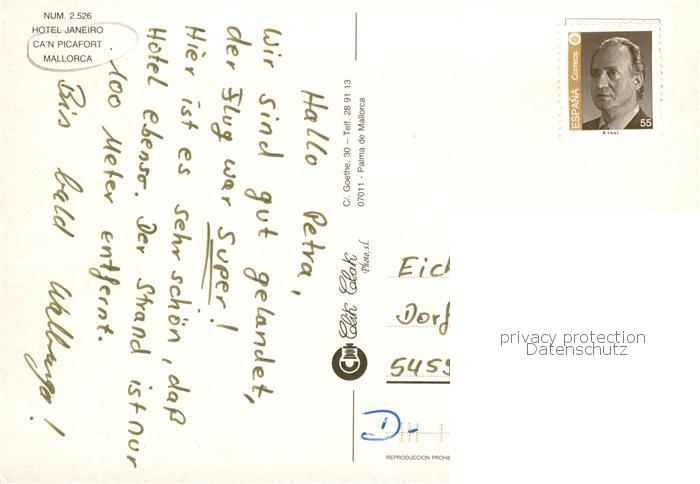 NUM. 2.526
HOTEL JANEIRO
CA'N PICAFORT
MALLORCA
Hallo Petra,
Wir sind gut gelandet,
der Flug war Super!
Hier ist es sehr schön, daß
Hotel ebenso. Der Strand ist nur
100 Meter entfernt.
Bis bald Walburga!
C/. Goethe, 30 – Telf. 28 91 13
07011 - Palma de Mallorca
Clik Clak
Photo, s.l.
ESPAÑA Correos
55
Eich
Dorf
5455
D-
REPRODUCCION PROHIB
privacy protection
Datenschutz